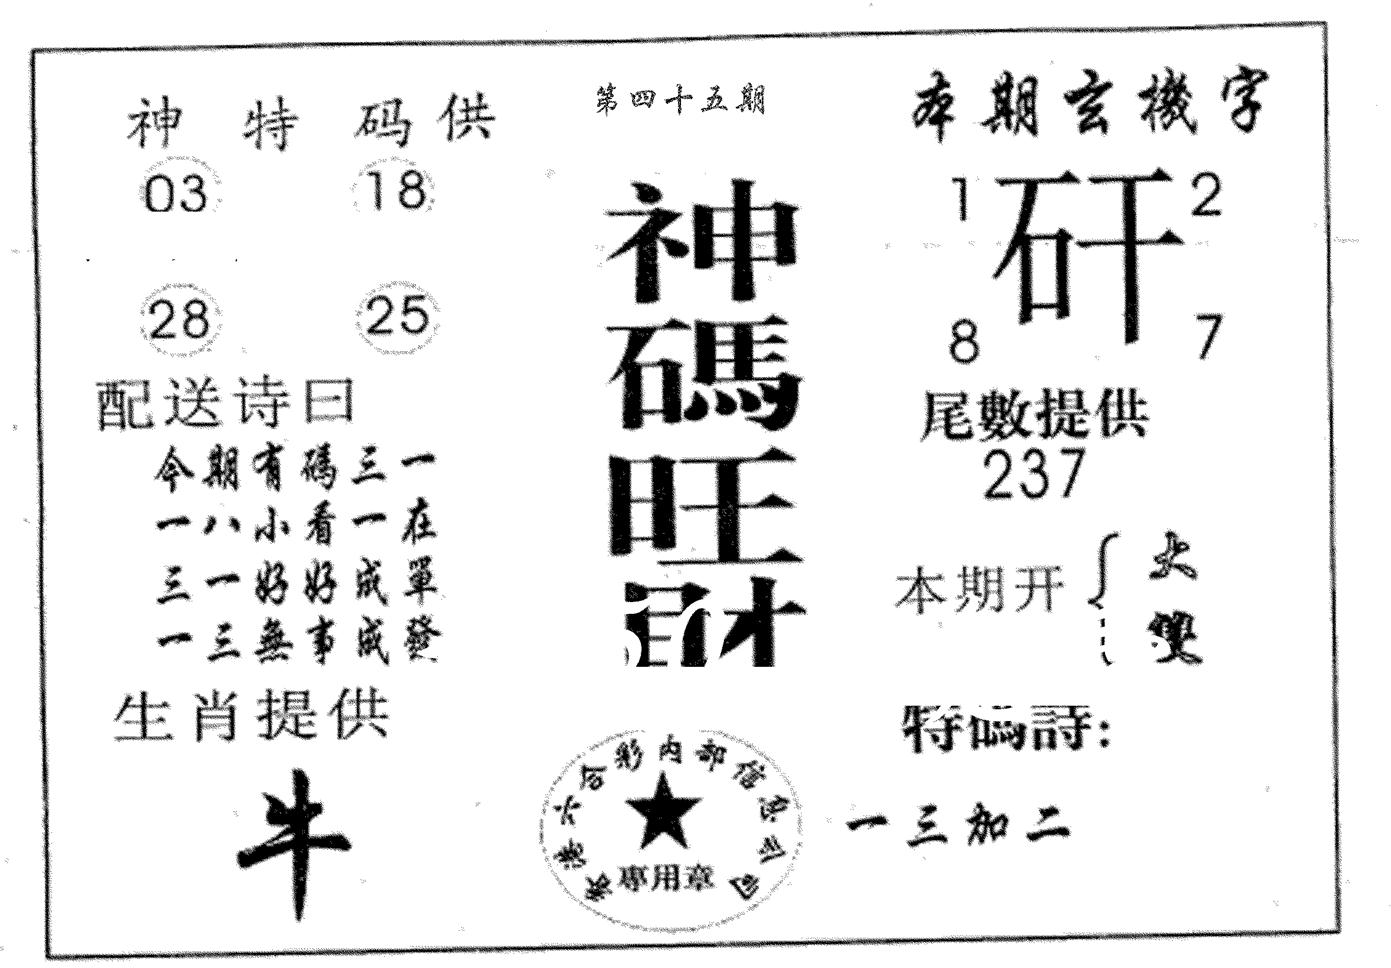 第四十五期
神特码供
03 18
28 25
配送诗曰
今期有碼三一
一八小看一在
三一好好成單
一三無事成發
生肖提供
牛
神碼旺財
香港六合彩内部信息公司
專用章
本期玄機字
1 矸 2
8 7
尾數提供
237
本期开 大
雙
特碼詩:
一三加二